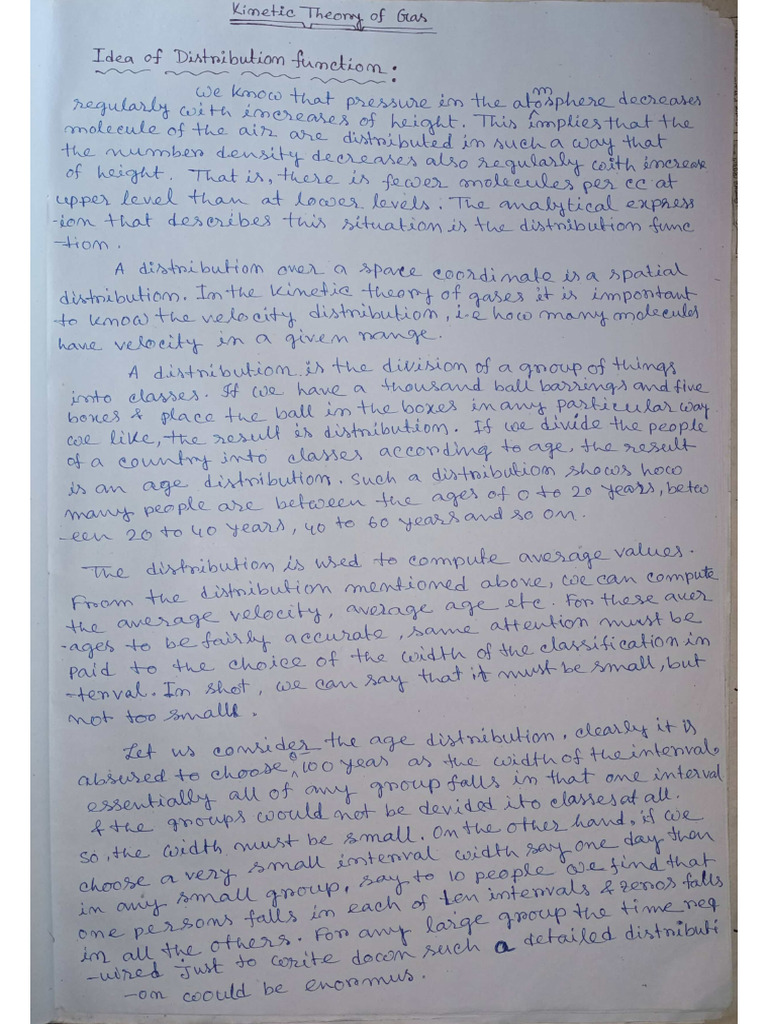 Kinetic Theory of Gas
Idea of Distribution function:
We know that pressure in the atmosphere decreases
regularly with increases of height. This implies that the
molecule of the air are distributed in such a way that
the number density decreases also regularly with increase
of height. That is, there is fewer molecules per cc at
upper level than at lower levels. The analytical express
-ion that describes this situation is the distribution func
-tion.
A distribution over a space coordinate is a spatial
distribution. In the kinetic theory of gases it is important
to know the velocity distribution, i.e how many molecules
have velocity in a given range.
A distribution is the division of a group of things
into classes. If we have a thousand ball barrings and five
boxes & place the ball in the boxes in any particular way
we like, the result is distribution. If we divide the people
of a country into classes according to age, the result
is an age distribution. Such a distribution shows how
many people are between the ages of 0 to 20 years, betw
-een 20 to 40 years, 40 to 60 years and so on.
The distribution is used to compute average values.
From the distribution mentioned above, we can compute
the average velocity, average age etc. For these aver
-ages to be fairly accurate, same attention must be
paid to the choice of the width of the classification in
-terval. In shot, we can say that it must be small, but
not too small.
Let us consider the age distribution. clearly it is
absured to choose 0-100 year as the width of the interval.
essentially all of any group falls in that one interval
& the groups would not be devided ito classes at all.
So, the width must be small. On the other hand, if we
choose a very small interval width say one day then
in any small group, say to 10 people we find that
one persons falls in each of ten intervals & zeros falls
in all the others. For any large group the time req
-uired just to write down such a detailed distributi
-on would be enormus.